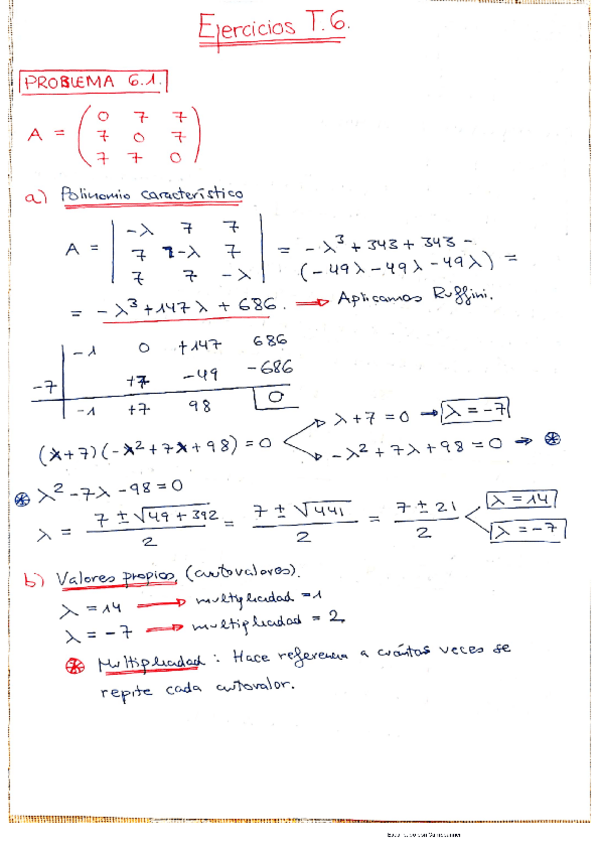 Ejercicios T.6.
PROBLEMA 6.1.
A = ( 0 7 7
7 0 7
7 7 0 )
a) Polinomio característico
A = | -λ 7 7 |
| 7 -λ 7 | = -λ³ + 343 + 343 -
| 7 7 -λ | (-49λ - 49λ - 49λ) =
= -λ³ + 147λ + 686. ⇒ Aplicamos Ruffini.
-1 0 +147 686
-7 +7 -49 -686
-1 +7 98 0
(x+7)(-x²+7x+98) = 0 → λ+7 = 0 → λ = -7
→ -λ² + 7λ + 98 = 0 ⇒ ⊛
⊛ λ² - 7λ - 98 = 0
λ = (7 ± √(49 + 392))/2 = (7 ± √441)/2 = (7 ± 21)/2 λ = 14
λ = -7
b) Valores propios (autovalores).
λ = 14 → multiplicidad = 1
λ = -7 → multiplicidad = 2
⊛ Multiplicidad : Hace referencia a cuántas veces se
repite cada autovalor.